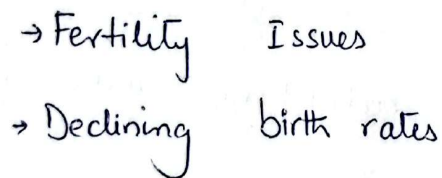 → Fertility Issues
→ Declining birth rates